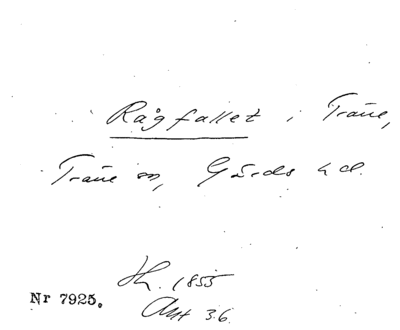 Rågfallet i Träne,
Träne sn, Gärds hd.
Sk. 1855
Akt 36.
Nr 7925.